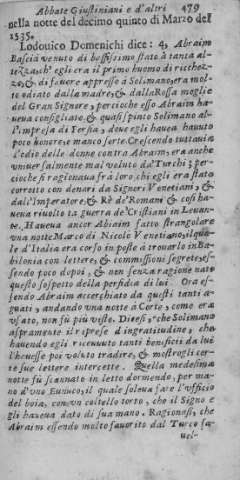 Abbate Giustiniani e d'altri 479
nella notte del decimo quinto di Marzo del
1535.
Lodouico Domenichi dice: 4, Abraim
Bascià venuto di bassissimo stato à tanta al-
tezza, ch' egli era il primo huomo di ricchez-
ze, & di fauore appresso à Solimano, era mol-
to odiato dalla madre, & dalla Rossa moglie
del Gran Signore, percioche esso Abraim ha-
ueua consigliato & quasi spinto Solimano al-
l'impresa di Persia, doue egli haueа hauuto
poco honore, e manco sorte. Crescendo tuttauia
l'odio delle donne contra Abraim, era anche
vniuersalmente mal voluto da' Turchi; per-
cioche si ragionaua frà loro, chi egli era stato
corrotto con denari da Signori Venetiani, &
dall'Imperatore, & Rè de' Romani & cosi ha-
ueua riuolto la guerra de' Cristiani in Leuan-
te. Haueua ancor Abraim fatto strangolare
vna notte Marco di Nicolò Venetiano, il qua-
le d'Italia era corso in poste à trouarlo in Ba-
bilonia con lettere, & commissioni segrete, es-
sendo poco dopoi, & non senza ragione nato
questo sospetto della perfidia di lui. Ora es-
sendo Abraim accerchiato da questi tanti a-
guati, andando vna notte à Corte, come era
vsato, non fù più visto. Dicesi, che Solimano
aspramente il riprese d'ingratitudine, che
hauendo egli riceuuto tanti beneficii da lui
l'hauesse poi voluto tradire, & mostrogli cer-
te sue lettere intercette. Quella medesima
notte fù scannato in letto dormendo, per ma-
no d'vno Eunuco, il quale soleua fare l'vfficio
del boia, con vn coltello torto, che il Signo e
gli haueua dato di sua mano. Ragionasi, che
Abraim essendo molto fauorito dal Turco fa-
uel-